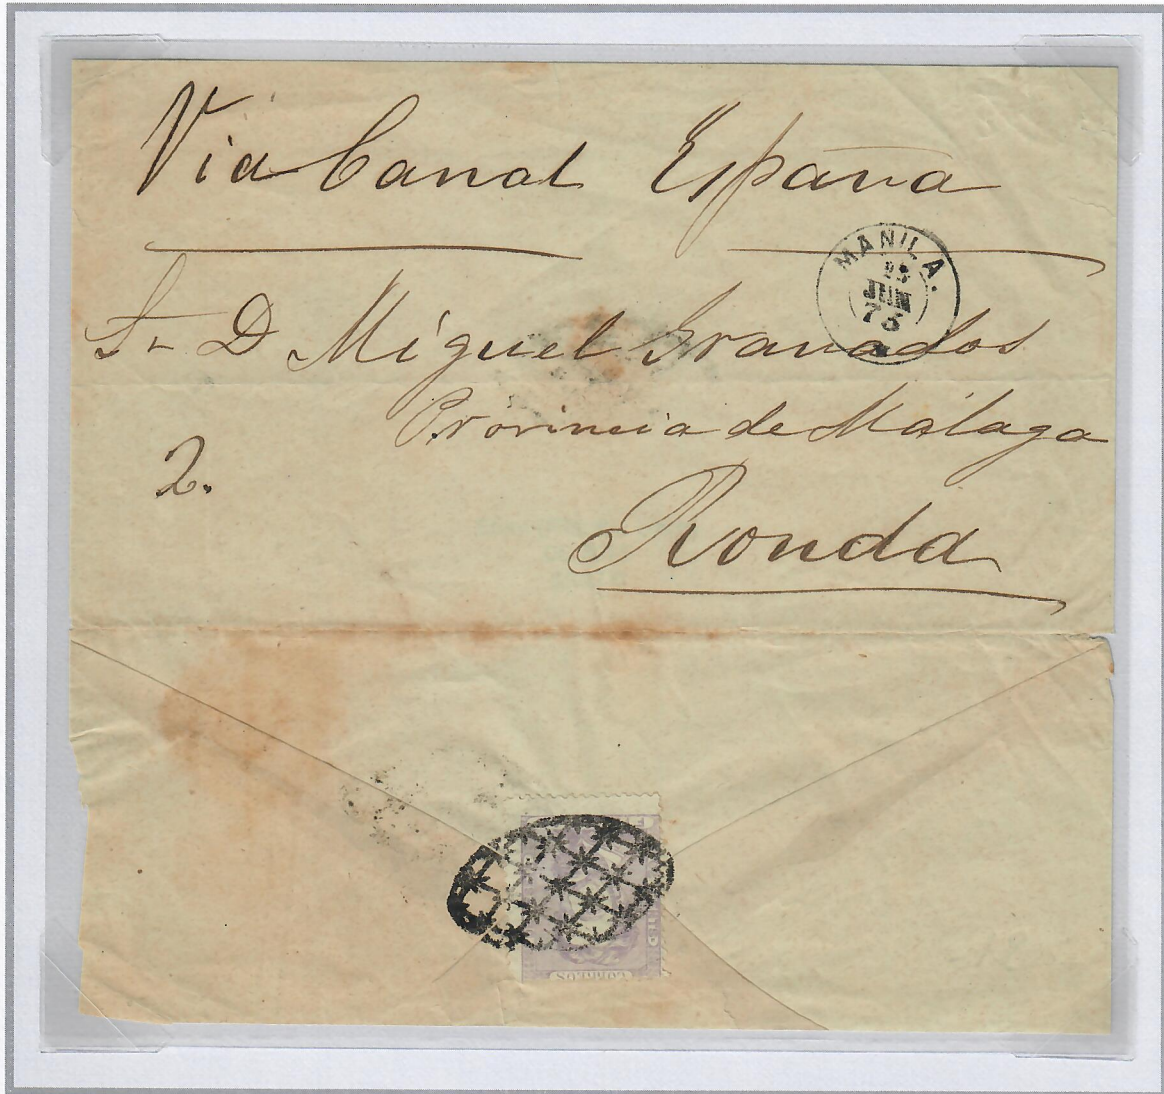 Via Canal España
MANILA.
25
JUN
75
Sr D Miguel Granados
Provincia de Málaga
2.
Ronda